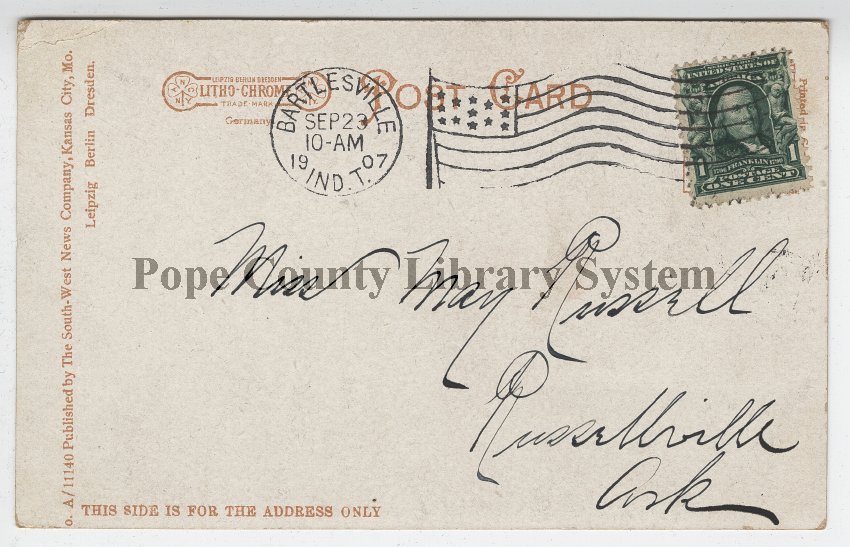 LEIPZIG BERLIN DRESDEN
LITHO-CHROME
TRADE MARK
Germany
POST CARD
BARTLESVILLE
SEP 23
10-AM
19 07
IND. T.
UNITED STATES OF
AMERICA
1 FRANKLIN 1
POSTAGE
ONE CENT
Printed in
Pope County Library System
Miss May Russell
Russellville
Ark
o. A/11140 Published by The South-West News Company, Kansas City, Mo.
Leipzig Berlin Dresden.
THIS SIDE IS FOR THE ADDRESS ONLY